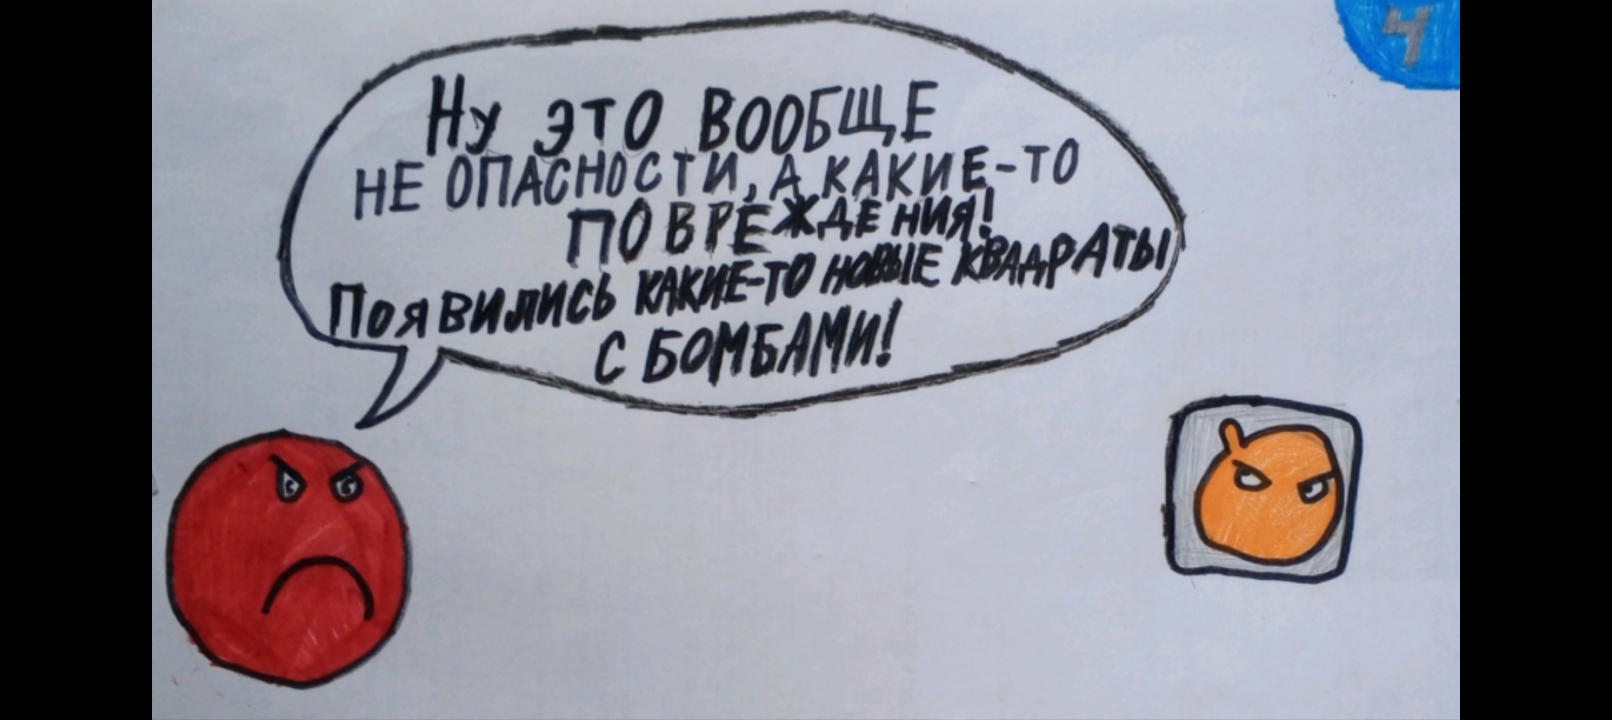 4
Ну это ВООБЩЕ
НЕ ОПАСНОСТИ, А КАКИЕ-ТО
ПОВРЕЖДЕНИЯ!
ПОЯВИЛИСЬ КАКИЕ-ТО НОВЫЕ КВАДРАТЫ
С БОМБАМИ!